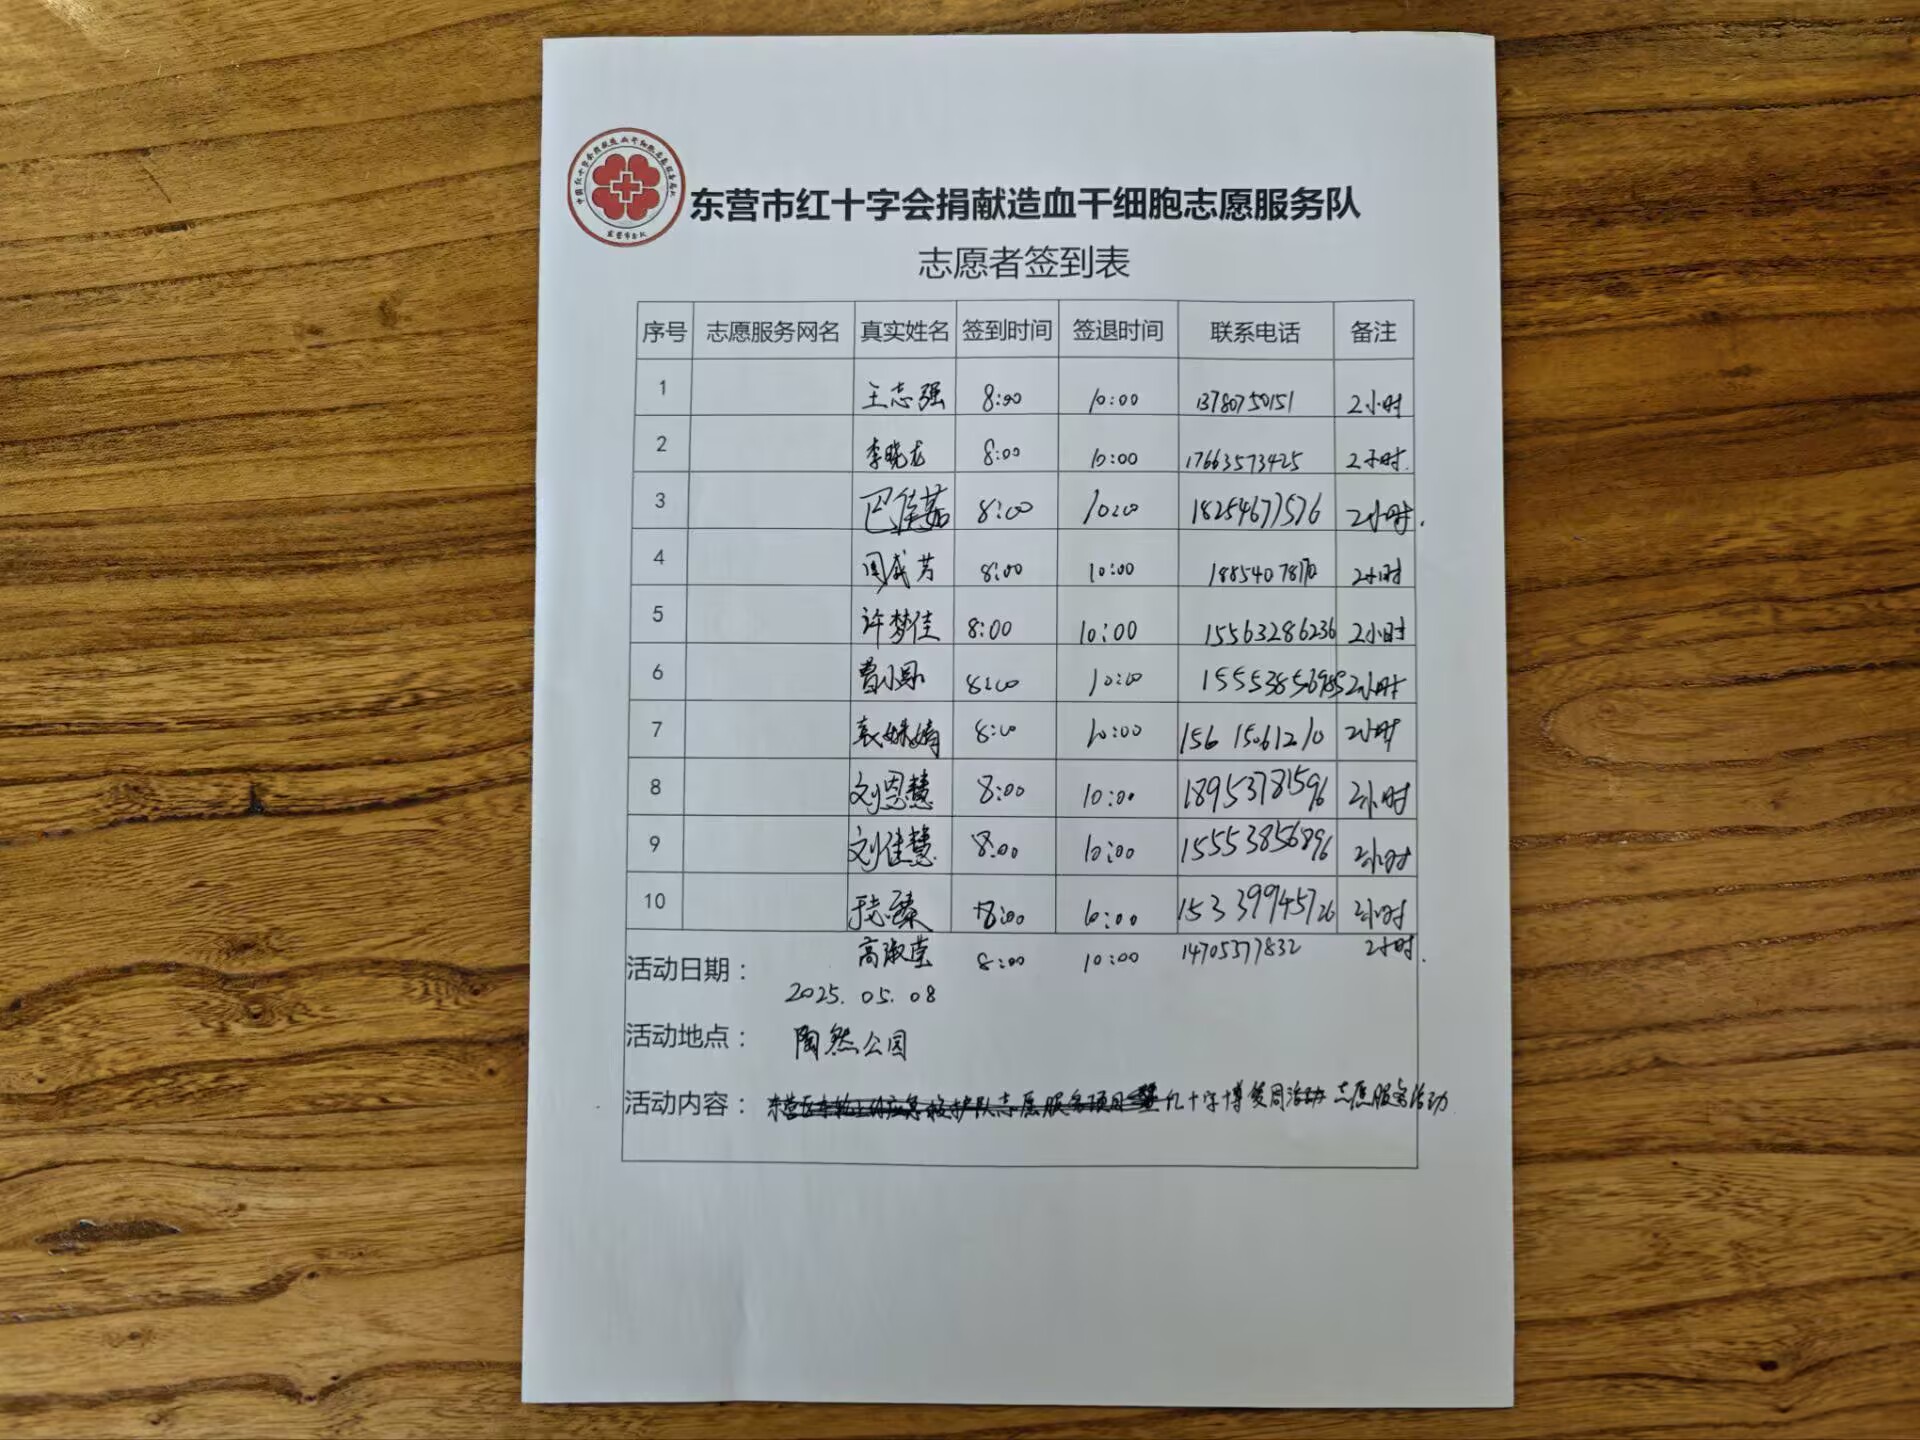 东营市红十字会捐献造血干细胞志愿服务队
志愿者签到表
序号 志愿服务网名 真实姓名 签到时间 签退时间 联系电话 备注
1 王志强 8:00 10:00 13780750151 2小时
2 李晓龙 8:00 10:00 17663573425 2小时.
3 巴佳茹 8:00 10:00 18254677576 2小时.
4 周成芳 8:00 10:00 18854078170 2小时
5 许梦佳 8:00 10:00 15563286236 2小时
6 8:00 10:00 2小时
7 袁姝婧 8:00 10:00 156 15061210 2小时
8 刘恩慧 8:00 10:00 18953781596 2小时
9 刘佳慧 8:00 10:00 15553856896 2小时
10 8:00 10:00 15339945726 2小时
高淑莹 8:00 10:00 14705377832 2小时.
活动日期： 2025.05.08
活动地点： 陶然公园
活动内容： 红十字博爱周活动 志愿服务活动